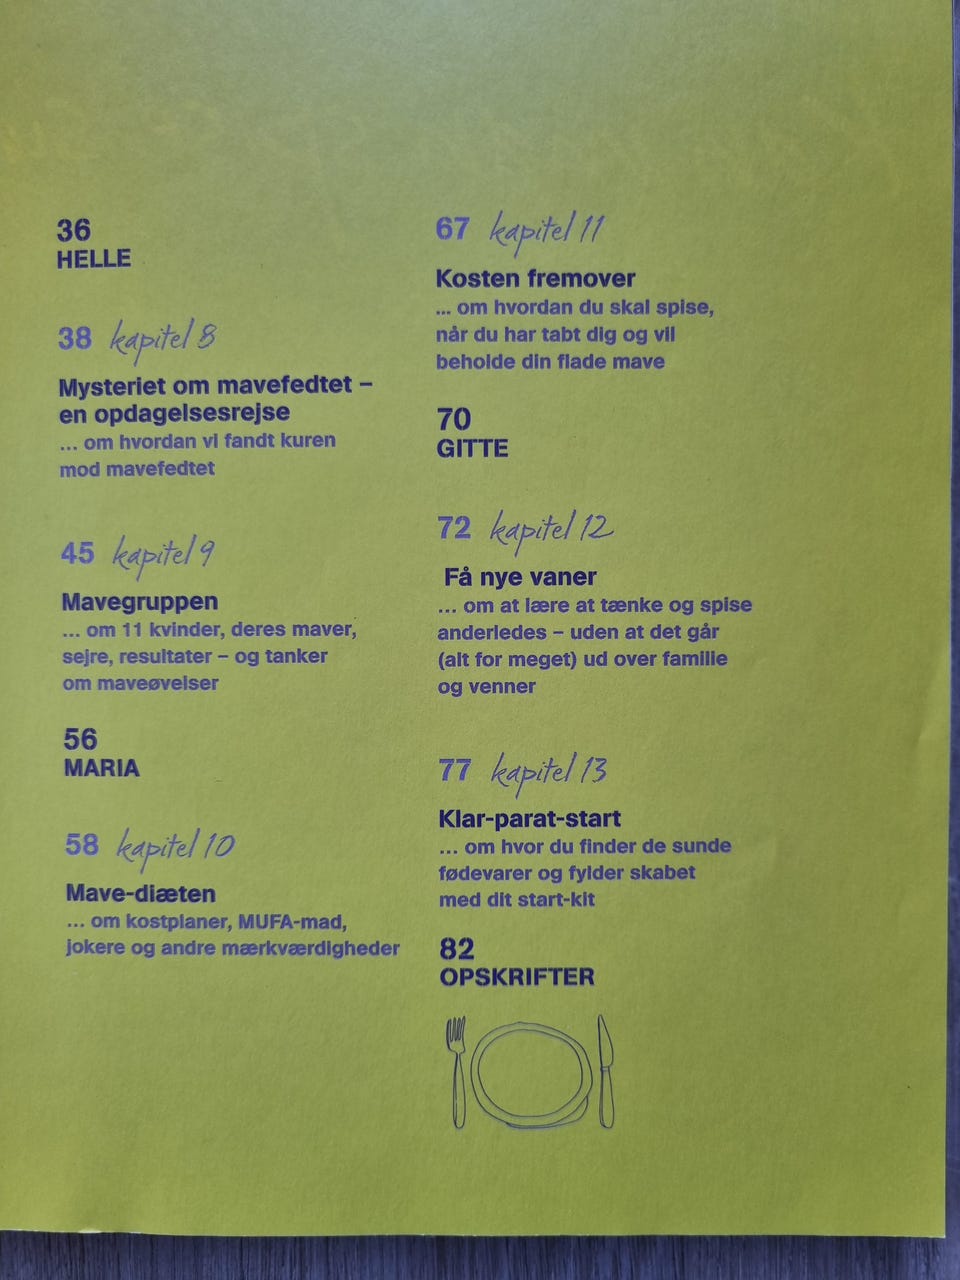 36
HELLE
38 kapitel 8
Mysteriet om mavefedtet –
en opdagelsesrejse
... om hvordan vi fandt kuren
mod mavefedtet
45 kapitel 9
Mavegruppen
... om 11 kvinder, deres maver,
sejre, resultater – og tanker
om maveøvelser
56
MARIA
58 kapitel 10
Mave-diæten
... om kostplaner, MUFA-mad,
jokere og andre mærkværdigheder
67 kapitel 11
Kosten fremover
... om hvordan du skal spise,
når du har tabt dig og vil
beholde din flade mave
70
GITTE
72 kapitel 12
Få nye vaner
... om at lære at tænke og spise
anderledes – uden at det går
(alt for meget) ud over familie
og venner
77 kapitel 13
Klar-parat-start
... om hvor du finder de sunde
fødevarer og fylder skabet
med dit start-kit
82
OPSKRIFTER